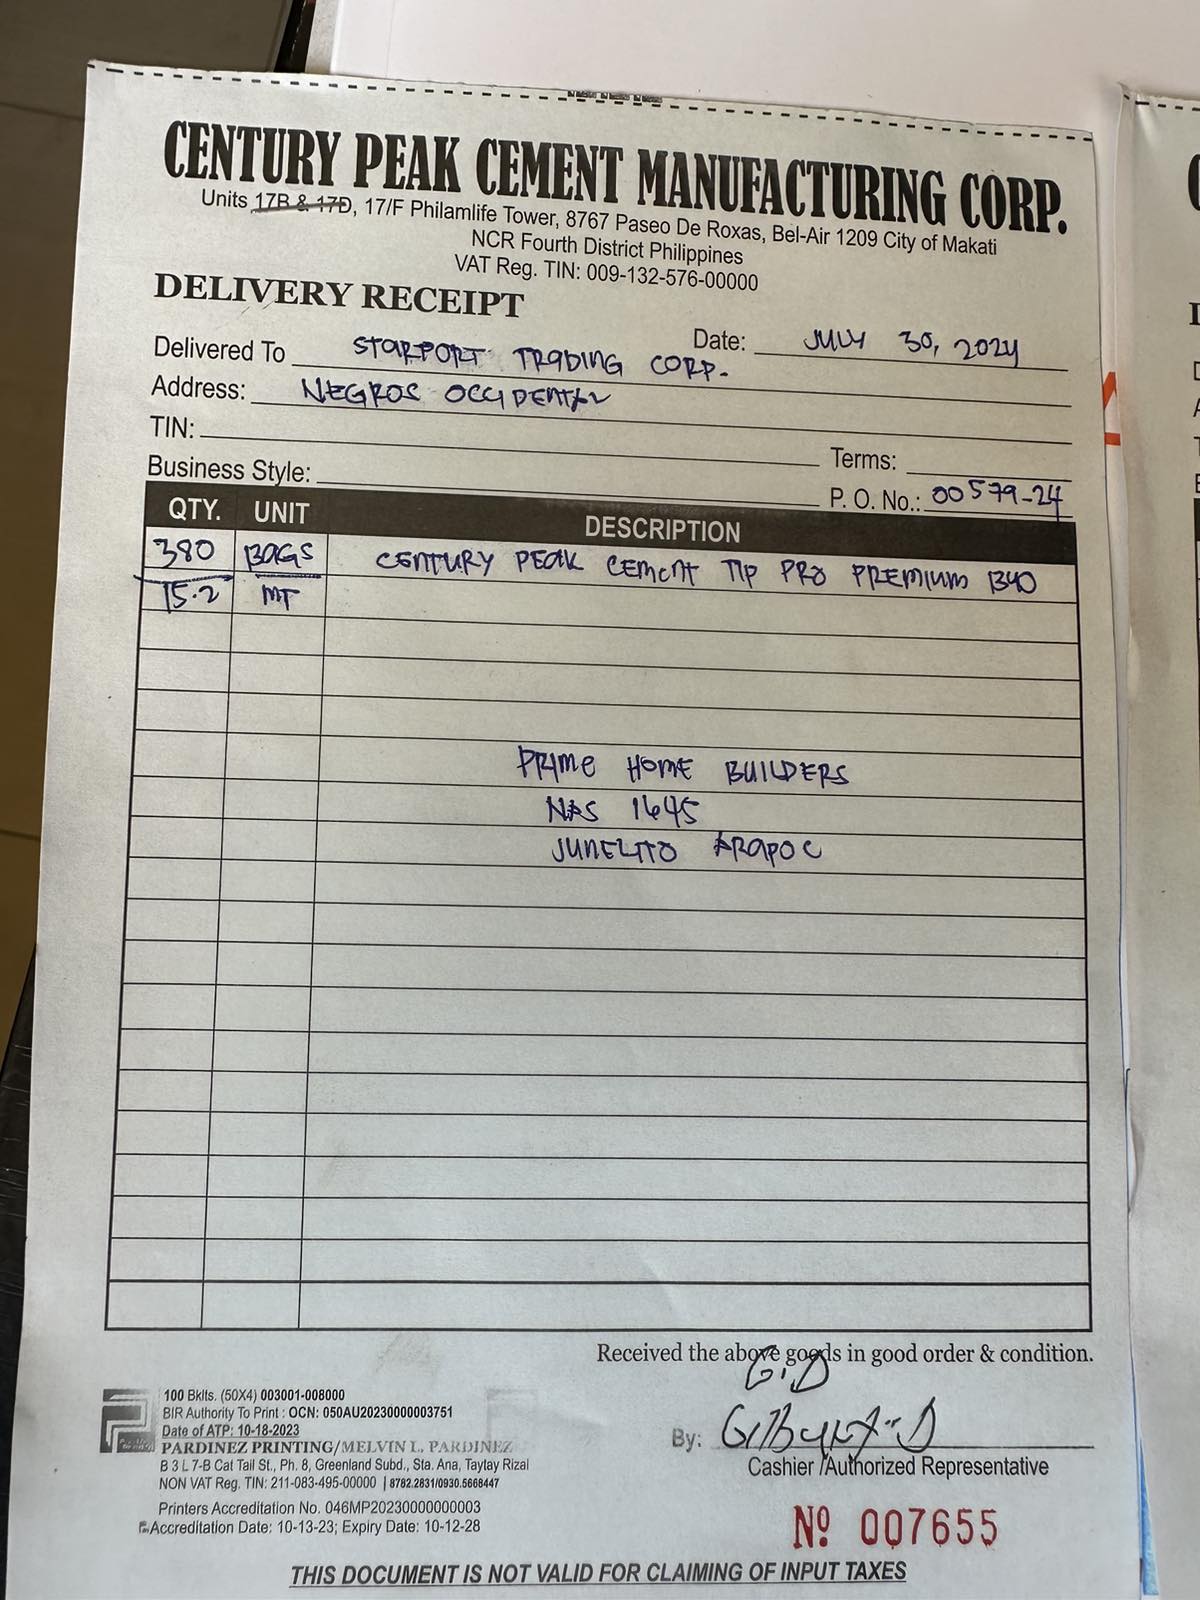 CENTURY PEAK CEMENT MANUFACTURING CORP.
Units 17B & 17D, 17/F Philamlife Tower, 8767 Paseo De Roxas, Bel-Air 1209 City of Makati
NCR Fourth District Philippines
VAT Reg. TIN: 009-132-576-00000
DELIVERY RECEIPT
Date: JULY 30, 2024
Delivered To STARPORT TRADING CORP.
Address: NEGROS OCCIDENTAL
TIN:
Terms:
Business Style:
P. O. No.: 00579-24
QTY. UNIT DESCRIPTION
380 BAGS CENTURY PEAK CEMENT TIP PRO PREMIUM B40
15.2 MT
PRIME HOME BUILDERS
NAS 1645
JUNELITO ARAPOC
Received the above goods in good order & condition.
G.D
By:
Cashier /Authorized Representative
100 Bklts. (50X4) 003001-008000
BIR Authority To Print : OCN: 050AU20230000003751
Date of ATP: 10-18-2023
PARDINEZ PRINTING/MELVIN L. PARDINEZ
B 3 L 7-B Cat Tail St., Ph. 8, Greenland Subd., Sta. Ana, Taytay Rizal
NON VAT Reg. TIN: 211-083-495-00000 | 8782.2831/0930.5668447
Printers Accreditation No. 046MP20230000000003
Accreditation Date: 10-13-23; Expiry Date: 10-12-28
Nº 007655
THIS DOCUMENT IS NOT VALID FOR CLAIMING OF INPUT TAXES